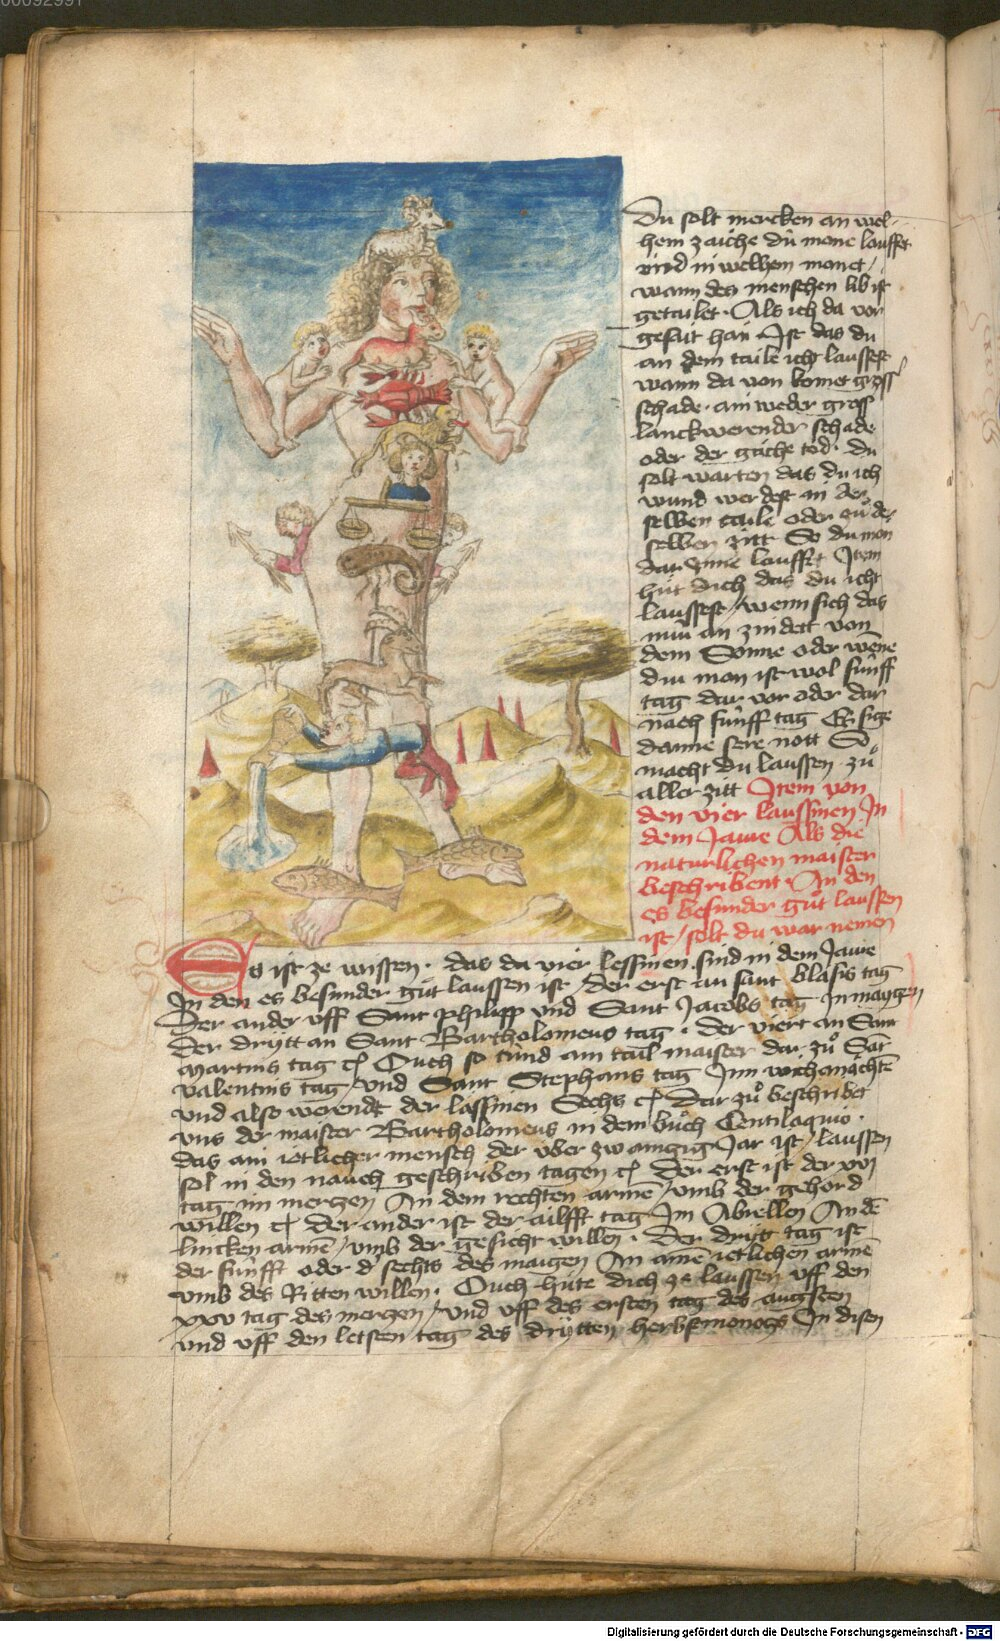 00092991
Du solt mercken an wel-
hem zaiche du mone lauffet
vnd in welhem monet /
wann des menschen lib ist
getailet · Als ich da vor
gesait han · Ist das du
an dem taile icht laussest
wann da von komet gross
schade · ain weder gross
lanckwerender schade
oder der gäche tod · du
solt warten das du ich
wund werdest in der
selben taile oder zů der
selben zitt So du mon
dar Inne laufft Item
hüt dich das du icht
laussest / wenn sich das
nüw an zündett von
dem Sonne oder wēne
diu mon ist wol fünff
tag dar vor oder dar
nach fünff tag Es sige
danne sere nott So
macht du laussen zů
aller zitt Item von
den vier laussinen In
dem Jaure Als die
naturlichen maister
beschribent · An den
es besunder gůt laussen
ist / solt du war nemen
Es ist ze wissen · das da vier lessinen sind in dem Jaure
In den es besunder gůt laussen ist / der erst an sant blasis tag
Der ander vff Sant philipp vnd Sant Jacobs tag In maygen
Der dritt an Sant Bartholomeus tag · der viert an Sant
Martins tag Ouch so tůnd ain tail maister dar zů Sat
valentins tag / vnd Sant Stephans tag Inn wichenächtē
vnd also werendt der lässinen Sechs Dar zů beschribet
vns der maister Bartholomeus in dem bůch Centilaquio ·
das ain ietlicher mensch der über zwaingzig Jar ist / laussen
sol in den nauch geschriben tagen Der erst ist der xvij
tag im mergen An dem rechten arme / vmb der gehörd
willen Der ander ist der ailfft tag Im Abrellen An dē
lincken armē / vmb der gesicht willen · Der dritt tag ist
der fünfft oder d sechts des maigen An ainē ietlichen armē
vmb des Ritten willen · Ouch hüte dich ze laussen vff den
xxv tag des mergen / vnd vff des ersten tag des augsten
vnd vff den letsten tag des dritten herbstmonogs In disen
Digitalisierung gefördert durch die Deutsche Forschungsgemeinschaft - DFG